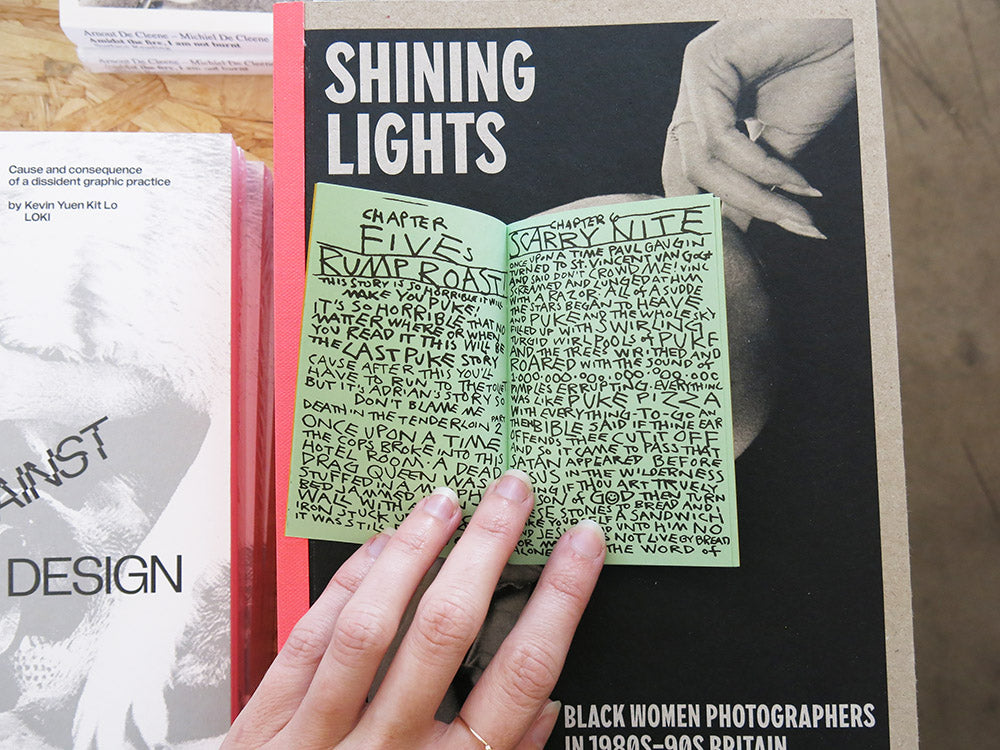 Arnout De Cleene – Michiel De Cleene
Amidst the fire, I am not burnt
Arnout De Cleene – Michiel De Cleene
Amidst the fire, I am not burnt
Cause and consequence
of a dissident graphic practice
by Kevin Yuen Kit Lo
LOKI
AINST
DESIGN
SHINING
LIGHTS
CHAPTER
FIVES
RUMP ROAST
THIS STORY IS SO HORRIBLE IT WILL
MAKE YOU PUKE!
IT'S SO HORRIBLE THAT NO
MATTER WHERE OR WHEN
YOU READ IT THIS WILL BE
THE LAST PUKE STORY
CAUSE AFTER THIS YOU'LL
HAVE TO RUN TO THE TOILET
BUT IT'S ADRIAN'S STORY SO
DON'T BLAME ME
DEATH IN THE TENDERLOIN PART 2
ONCE UPON A TIME
THE COPS BROKE INTO THIS
HOTEL ROOM. A DEAD
DRAG QUEEN WAS
STUFFED IN A M
BED JAMMED PH
WALL WITH A
IRON STUCK U
IT WAS STILL
CHAPTER 6
SCARRY NITE
ONCE UPON A TIME PAUL GAUGIN
TURNED TO ST. VINCENT VAN GOGH
AND SAID DON'T CROWD ME! VINC
SCREAMED AND LUNGED AT HIM
WITH A RAZOR. ALL OF A SUDDE
THE STARS BEGAN TO HEAVE
AND PUKE AND THE WHOLE SKY
FILLED UP WITH SWIRLING
TURGID WIRLPOOLS OF PUKE
AND THE TREES WRITHED AND
ROARED WITH THE SOUND OF
1.000.000.000.000.000.000
PIMPLES ERRUPTING. EVERYTHING
WAS LIKE PUKE PIZZA
WITH EVERYTHING-TO-GO AN
THEN BIBLE SAID IF THINE EAR
OFFENDS THEE CUT IT OFF
AND SO IT CAME TO PASS THAT
SATAN APPEARED BEFORE
JESUS IN THE WILDERNESS
ING IF THOU ART TRUELY
SON OF GOD THEN TURN
ESE STONES TO BREAD AND
AKE YOURSELF A SANDWICH
AND JESUS SAID UNTO HIM NO
FOR MAN IS NOT LIVE BY BREAD
ALONE THE WORD OF
BLACK WOMEN PHOTOGRAPHERS
IN 1980S–90S BRITAIN